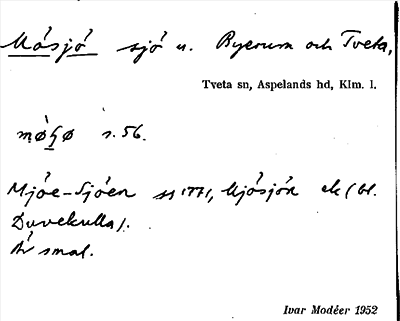 Mösjö sjö n. Byerum och Tveta,
Tveta sn, Aspelands hd, Klm. l.
s. 56.
Mjöe-Sjöen 1771, Mjösjön ek (bl.
Duvekulla).
Är smal.
Ivar Modéer 1952